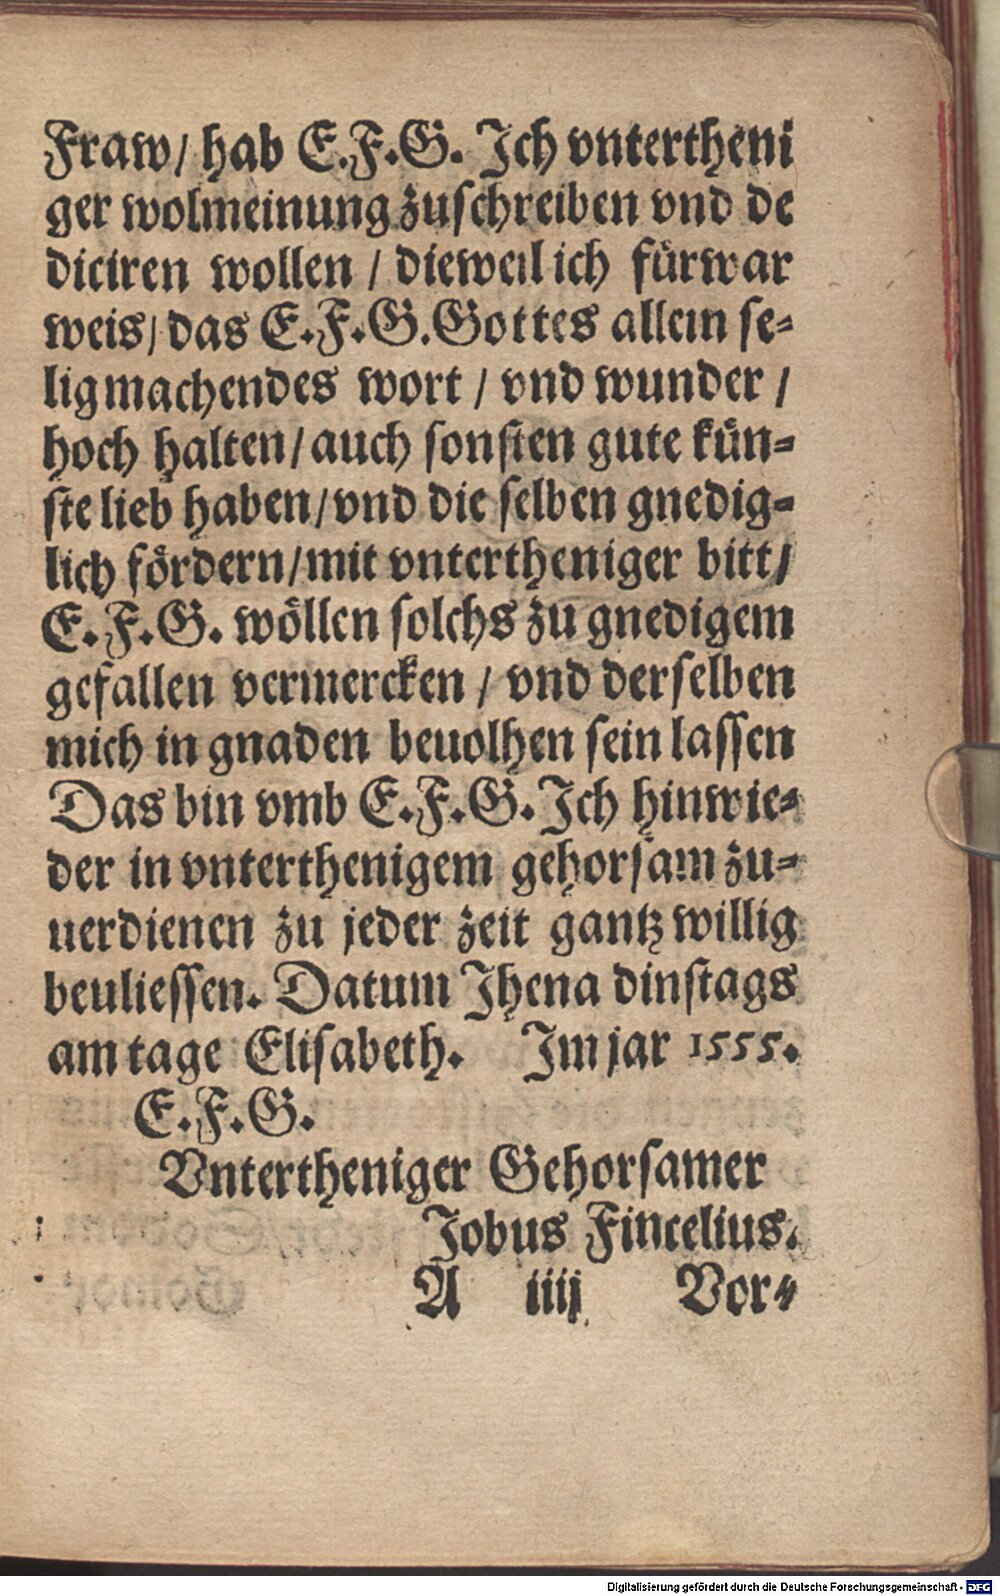 Fraw/ hab E.F.G. Ich vntertheni
ger wolmeinung zuschreiben vnd de
diciren wollen / dieweil ich fürwar
weis/ das E.F.G. Gottes allein se-
ligmachendes wort / vnd wunder /
hoch halten/ auch sonsten gute kün-
ste lieb haben/ vnd die selben gnedig-
lich fördern/ mit vntertheniger bitt/
E.F.G. wöllen solchs zu gnedigem
gefallen vermercken / vnd derselben
mich in gnaden beuolhen sein lassen
Das bin vmb E.F.G. Ich hinwie-
der in vnterthenigem gehorsam zu-
uerdienen zu jeder zeit gantz willig
beuliessen. Datum Jhena dinstags
am tage Elisabeth. Im jar 1555.
E.F.G.
Vntertheniger Gehorsamer
Jobus Fincelius.
A iiij Vor-
Digitalisierung gefördert durch die Deutsche Forschungsgemeinschaft - DFG